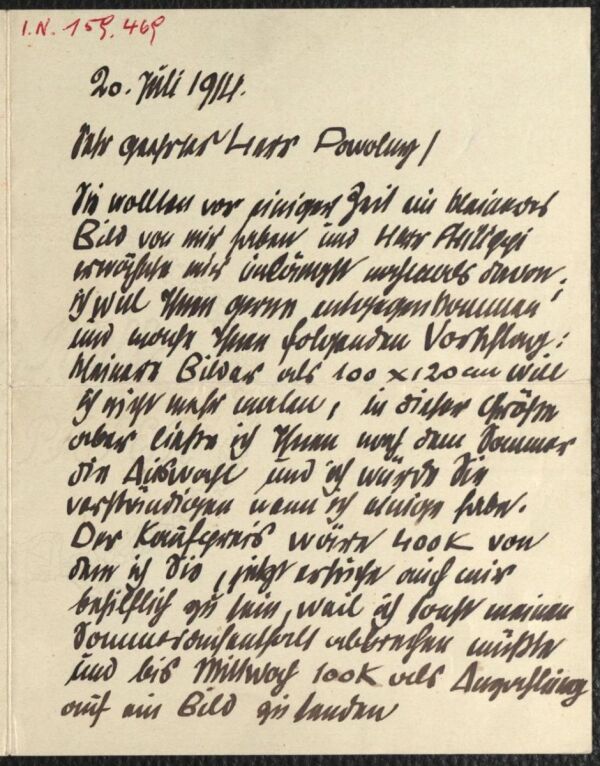 I.N. 159.469
20. Juli 1914.
Sehr geehrter Herr Powolny!
Sie wollten vor einiger Zeit ein kleineres
Bild von mir haben und Herr Philippi
erwähnte mir unlängst nochmals davon.
ich will Ihnen gerne entgegenkommen
und mache Ihnen folgenden Vorschlag:
kleinere Bilder als 100 x 120 cm will
ich nicht mehr malen, in dieser Größe
aber ließe ich Ihnen nach dem Sommer
die Auswahl und ich würde Sie
verständigen wenn ich einige habe.
Der Kaufpreis wäre 400 K von
dem ich Sie, jetzt ersuche auch mir
behilflich zu sein, weil ich sonst meinen
Sommeraufenthalt abbrechen müßte
und bis Mittwoch 100 K als Angahlung
auf ein Bild zu senden